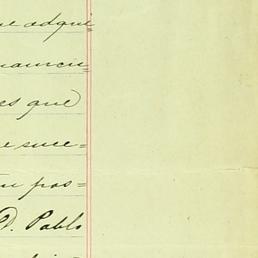 ue adqui=
nuncia=
es que
e suce=
pos=
D. Pablo